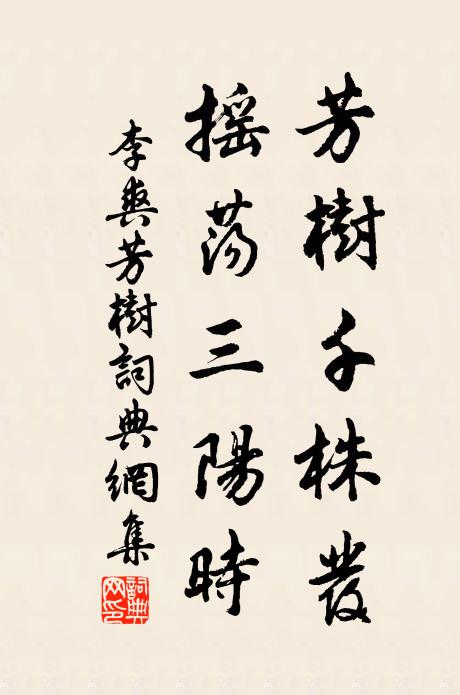 芳樹千株發
搖蕩三陽時
李爽芳樹詞典網集
詞典网印